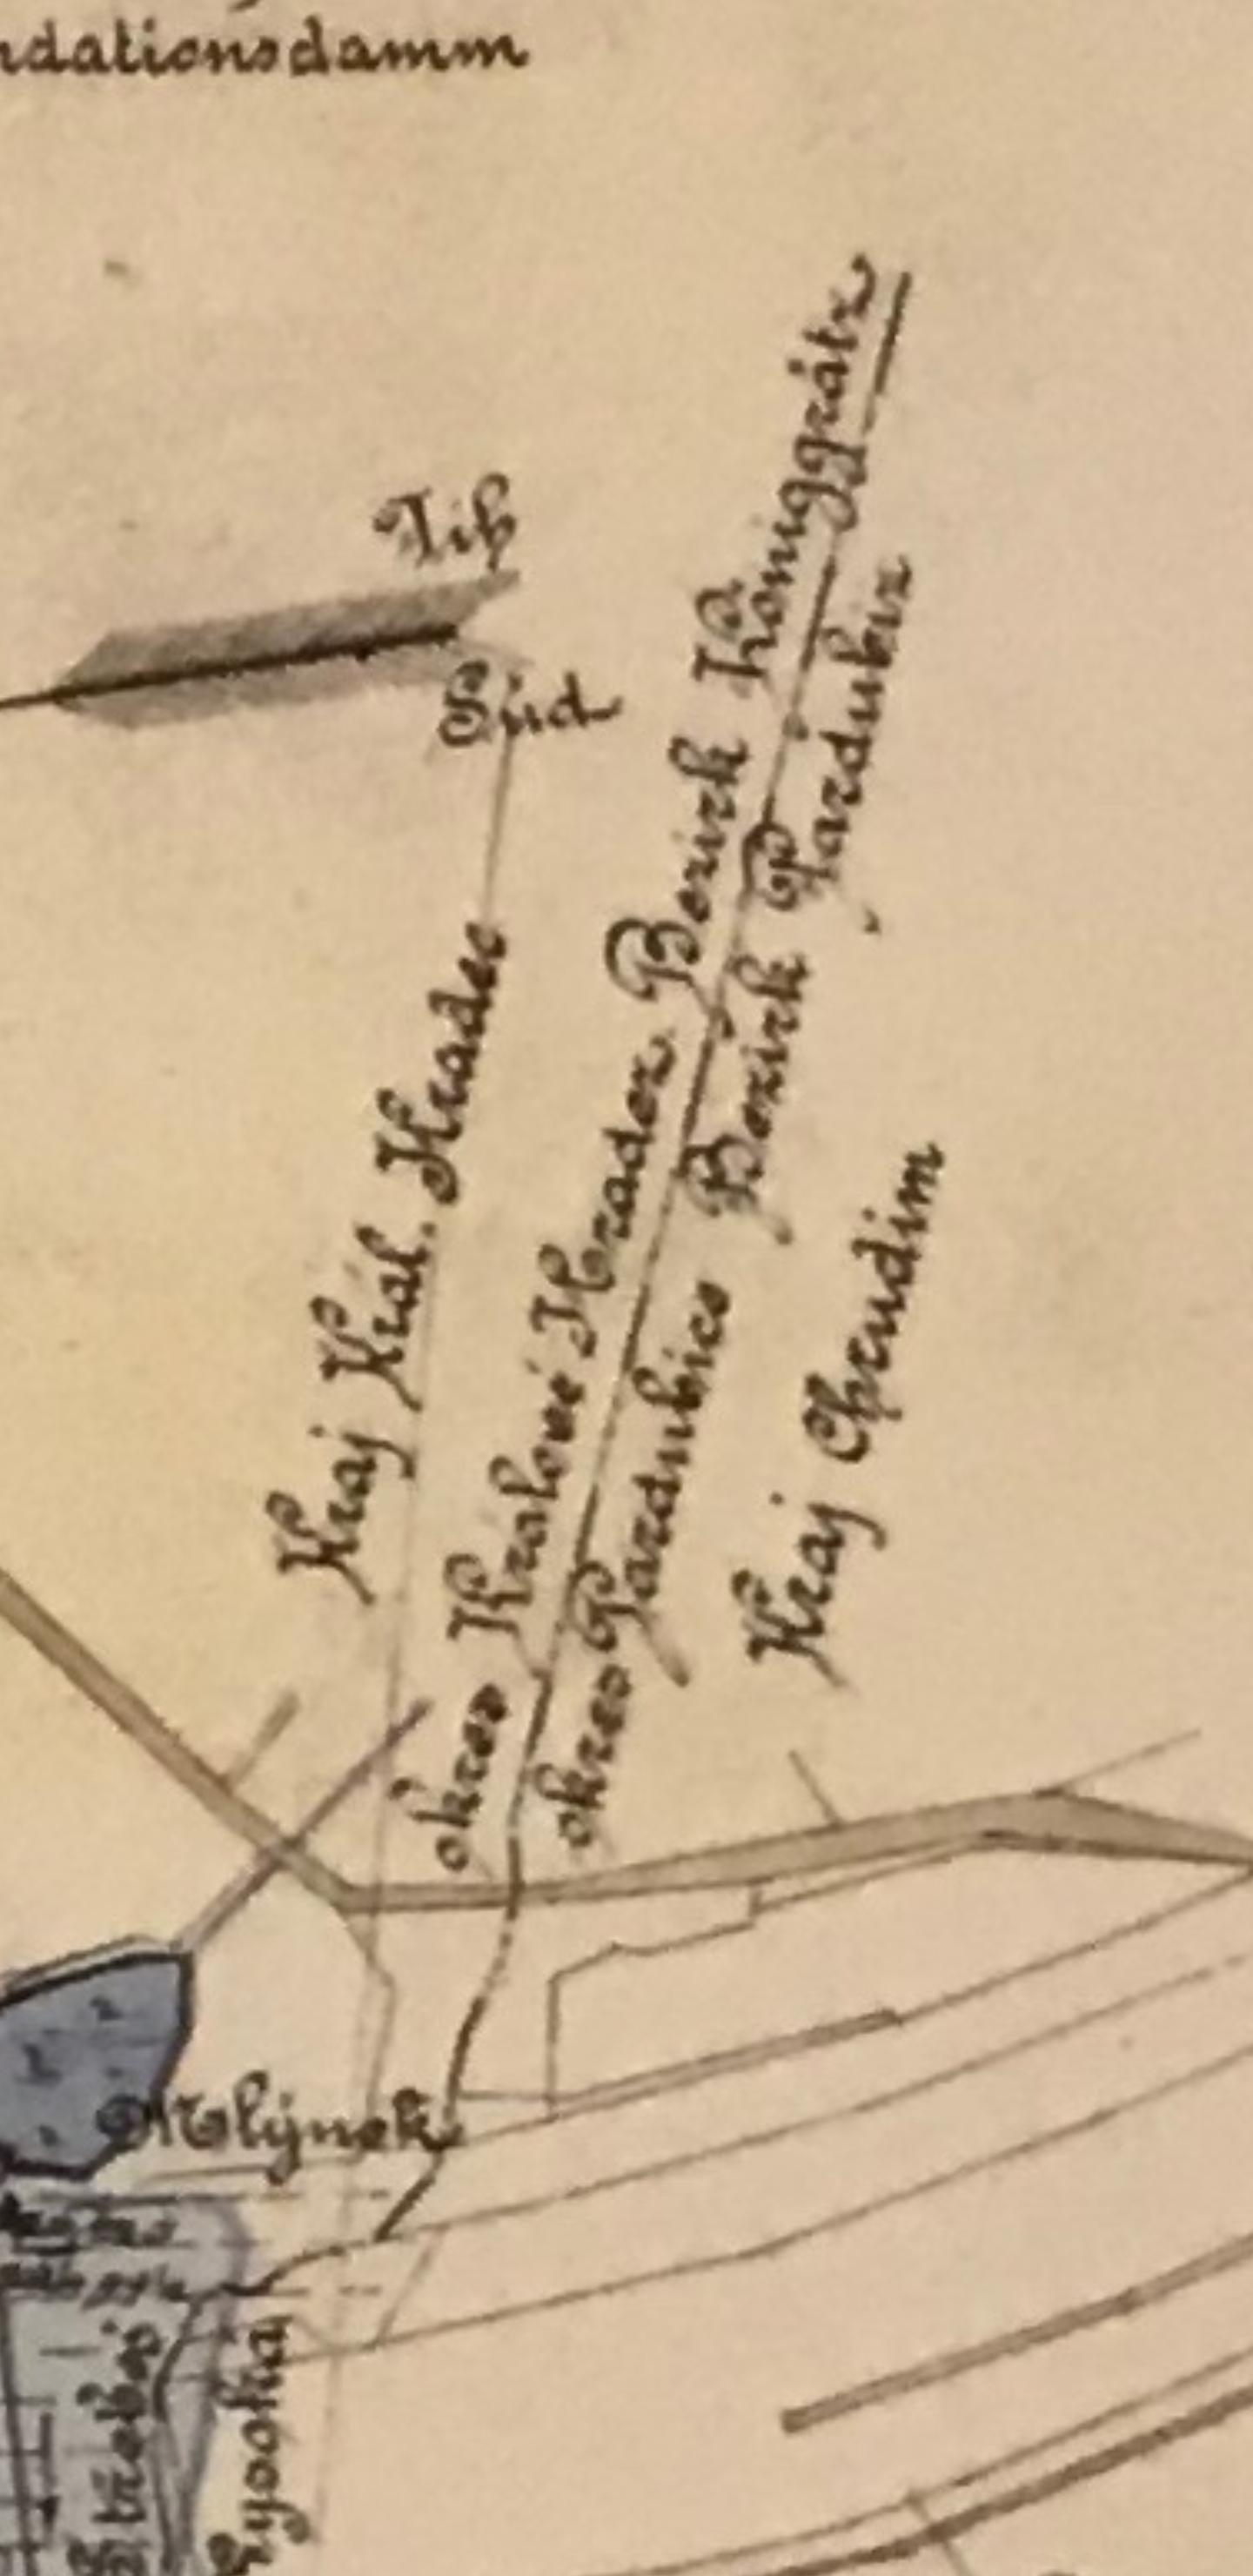 ndationsdamm
Jih
Süd
Kraj Král. Hradec
okres Králové Hradec Bezirk Königgrätz
okres Pardubice Bezirk Pardubiz
Kraj Chrudim
Mlýnek